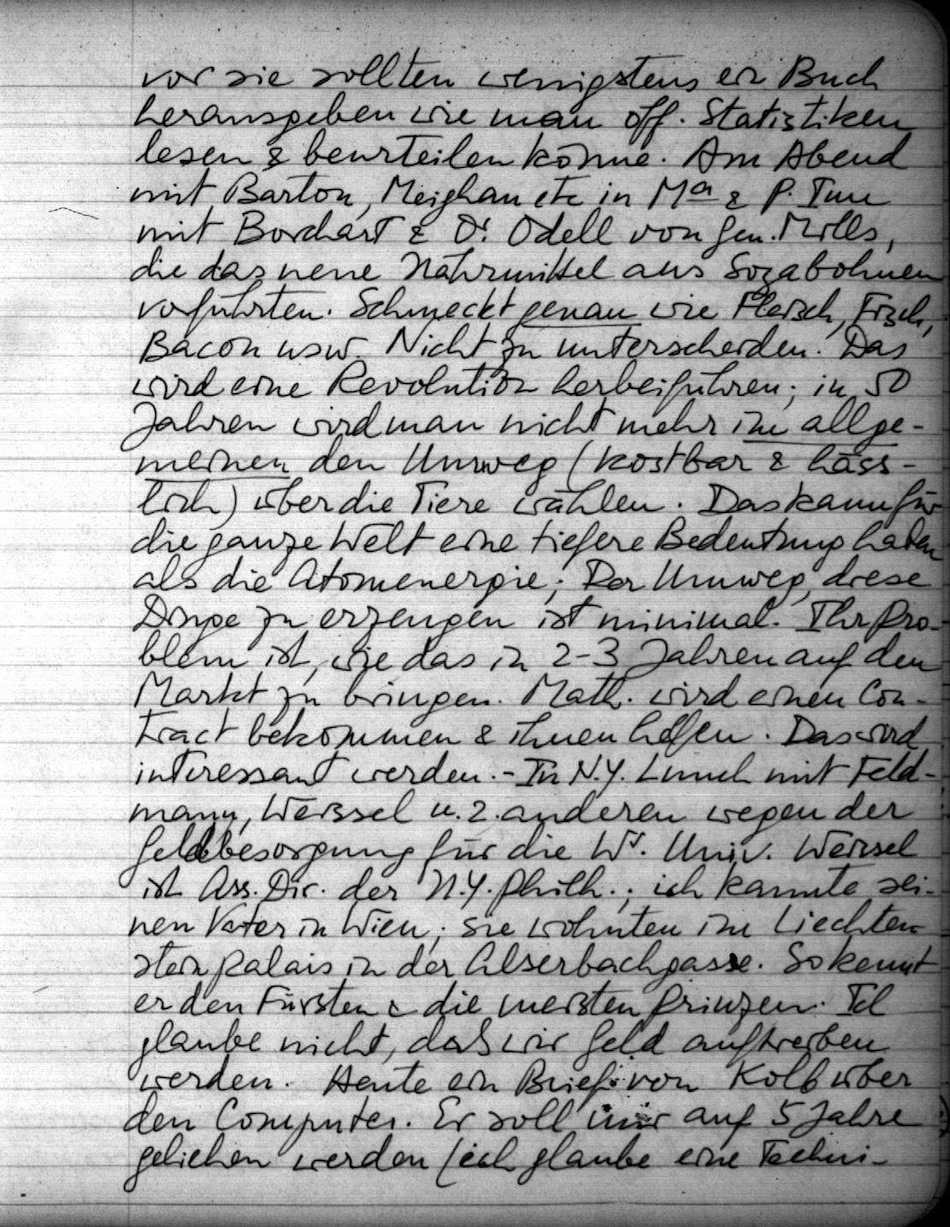 vor sie sollten wenigstens ein Buch
herausgeben wie man off. Statistiken
lesen & beurteilen könne. Am Abend
mit Barton, Meighan etc in Ma & P. Tm
mit Borchart & Dr Odell von Gen. Mills,
die das neue Nährmittel aus Sozabohnen
vorführten. Schmeckt genau wie Fleisch, Fisch,
Bacon usw. Nicht zu unterscheiden. Das
wird eine Revolution herbeiführen; in 50
Jahren wird man nicht mehr im allge-
meinen den Umweg (kostbar & häss-
lich) über die Tiere wählen. Das kann für
die ganze Welt eine tiefere Bedeutung haben
als die Atomenergie; Der Umweg, diese
Dinge zu erzeugen ist minimal. Ihr Pro-
blem ist, wie das in 2-3 Jahren auf den
Markt zu bringen. Math. wird einen Con-
tract bekommen & ihnen helfen. Das wird
interessant werden. - In N.Y. Lunch mit Feld-
mann, Weissel u. 2. anderen wegen der
Geldbesorgung für die Wr. Univ. Weissel
ist Ass. Dir. der N.Y. Philh.; ich kannte sei-
nen Vater in Wien; sie wohnten im Liechten-
stein Palais in der Alserbachgasse. So kennt
er den Fürsten & die meisten Prinzen. Ich
glaube nicht, daß wir Geld auftreiben
werden. Heute ein Brief von Kolb über
den Computer. Er soll mir auf 5 Jahre
geliehen werden (ich glaube eine Techni-